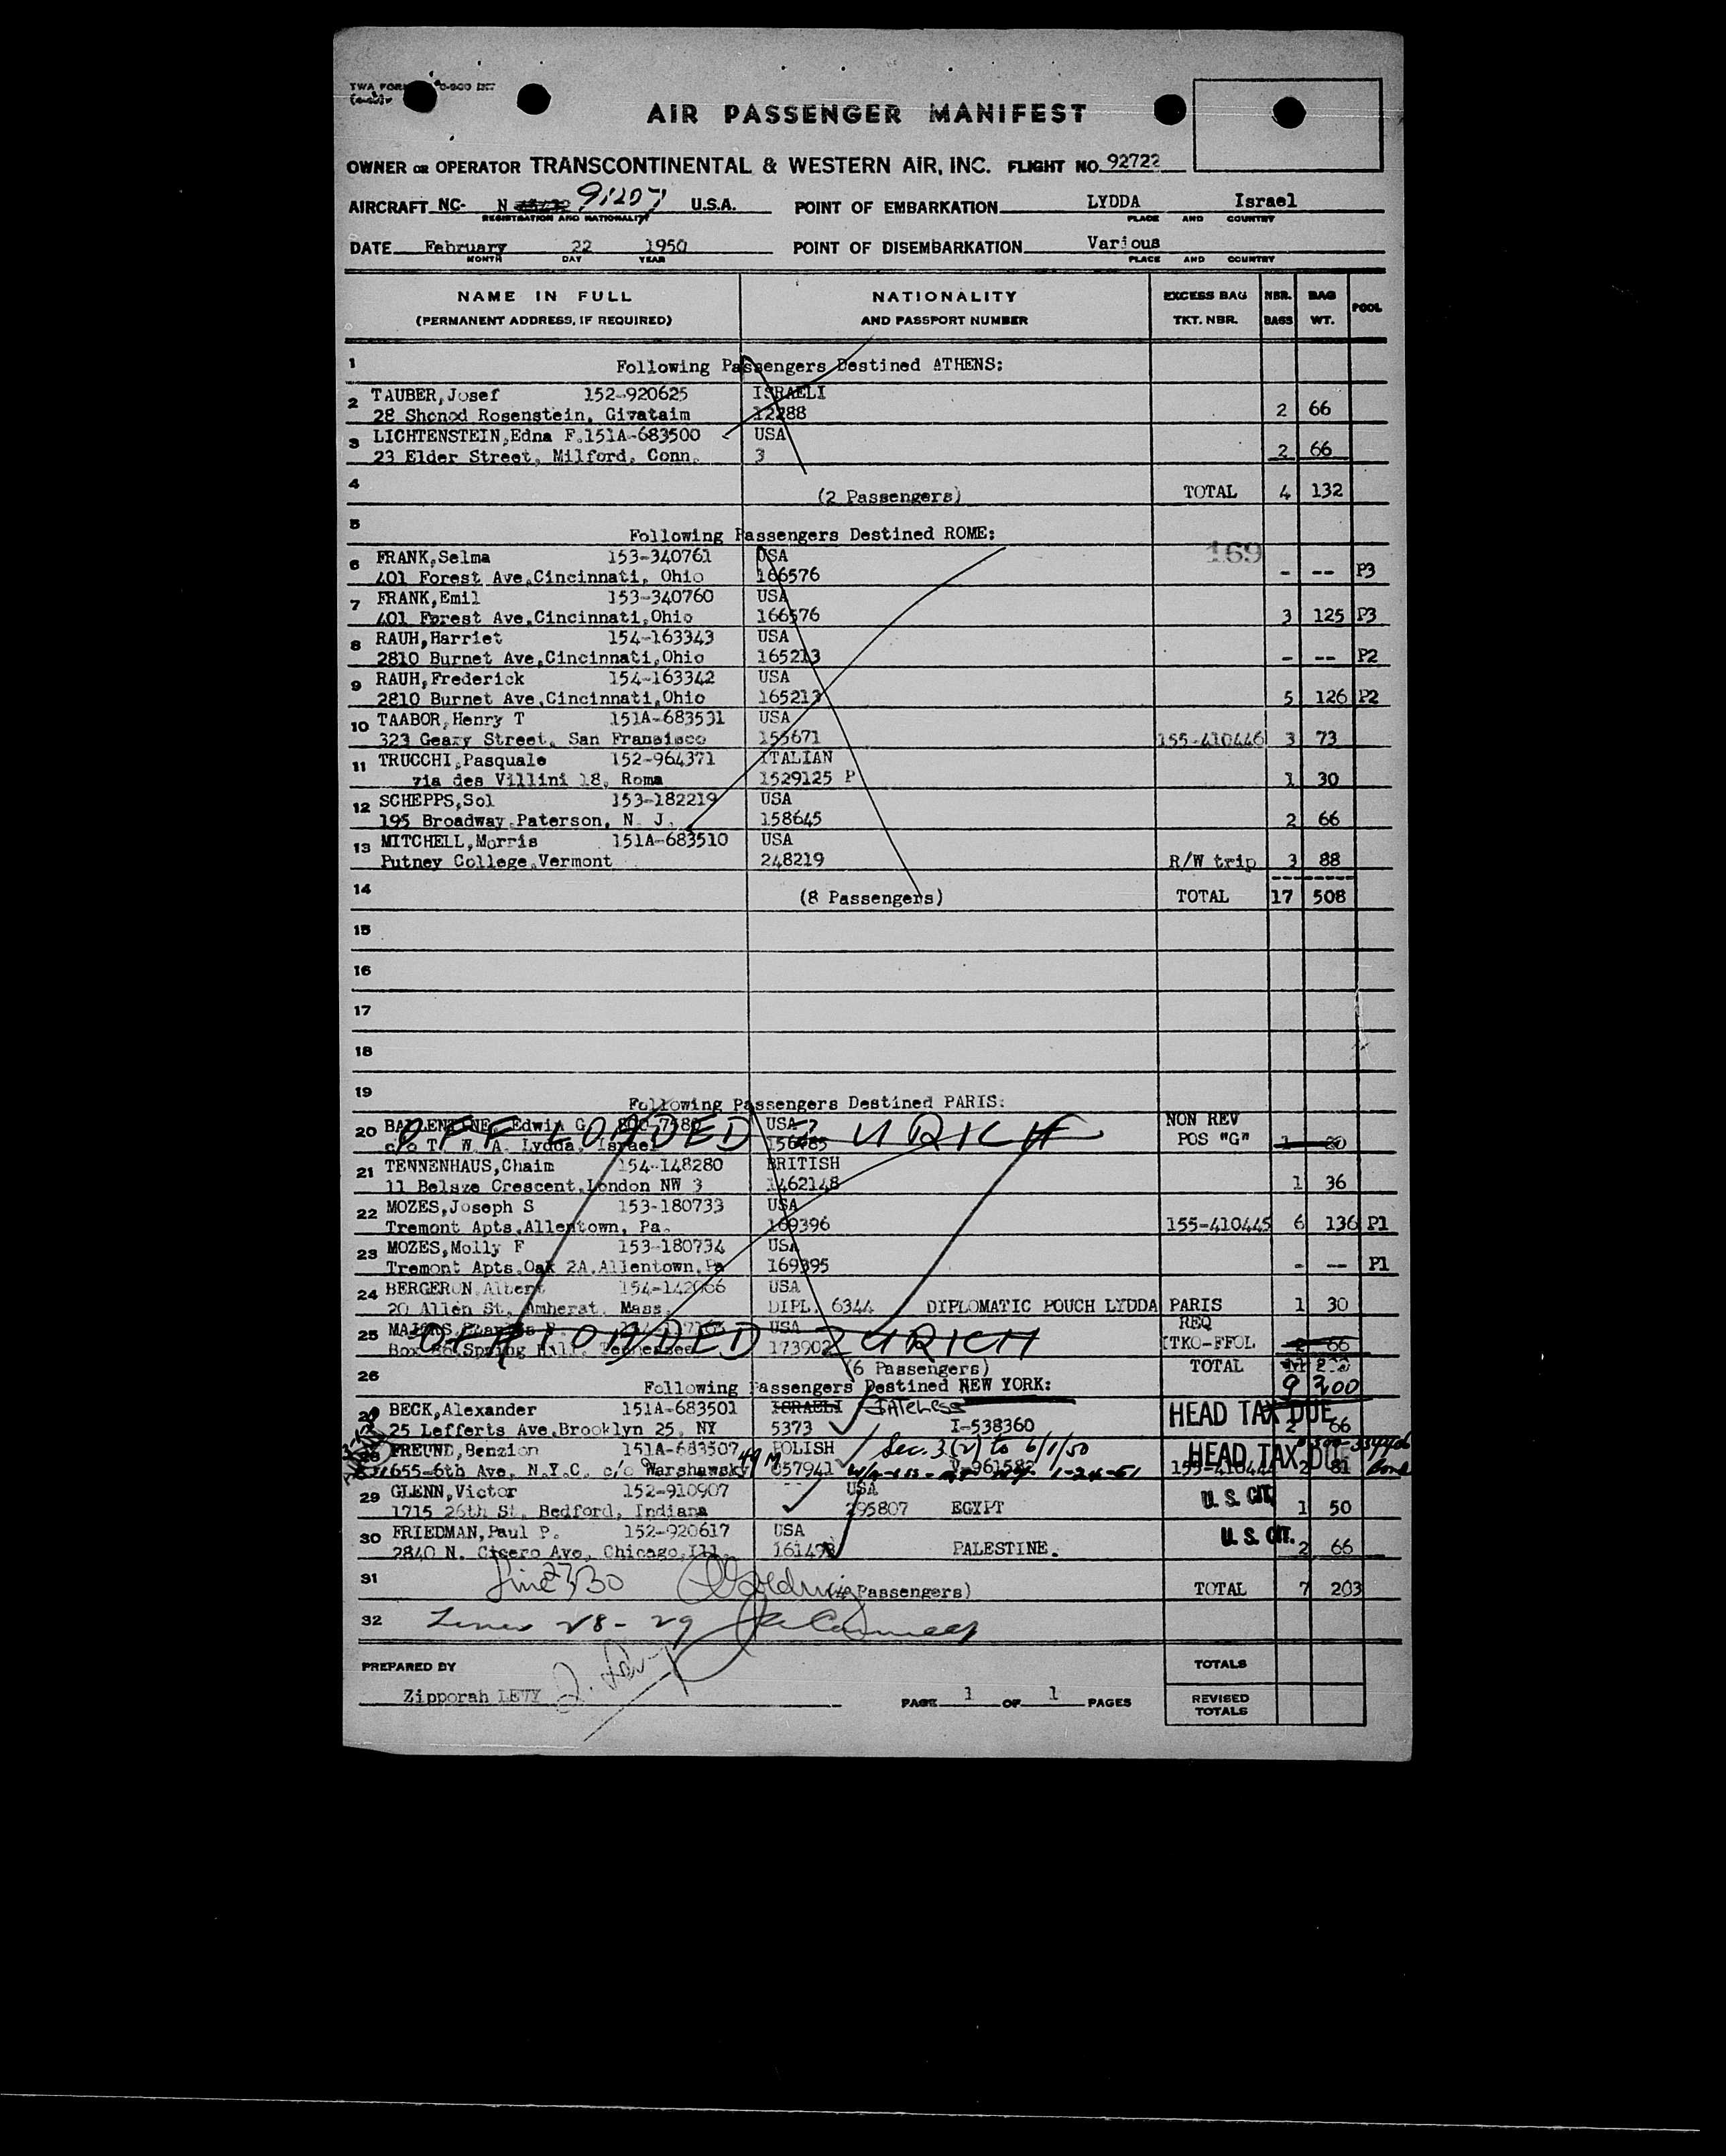 AIR PASSENGER MANIFEST
OWNER OR OPERATOR TRANSCONTINENTAL & WESTERN AIR, INC. FLIGHT NO. 92722
AIRCRAFT NC- N 91207 U.S.A. POINT OF EMBARKATION LYDDA Israel
REGISTRATION AND NATIONALITY PLACE AND COUNTRY
DATE February 22 1950 POINT OF DISEMBARKATION Various
MONTH DAY YEAR PLACE AND COUNTRY
NAME IN FULL NATIONALITY EXCESS BAG NBR. BAG POOL
(PERMANENT ADDRESS, IF REQUIRED) AND PASSPORT NUMBER TKT. NBR. BAGS WT.
1 Following Passengers Destined ATHENS:
2 TAUBER, Josef 152-920625 ISRAELI
28 Shenod Rosenstein, Givataim 12288 2 66
3 LICHTENSTEIN, Edna F. 151A-683500 USA
23 Elder Street, Milford, Conn. 3 2 66
4 (2 Passengers) TOTAL 4 132
5 Following Passengers Destined ROME:
169
6 FRANK, Selma 153-340761 USA
401 Forest Ave, Cincinnati, Ohio 166576 - -- P3
7 FRANK, Emil 153-340760 USA
401 Forest Ave, Cincinnati, Ohio 166576 3 125 P3
8 RAUH, Harriet 154-163343 USA
2810 Burnet Ave, Cincinnati, Ohio 165213 - -- P2
9 RAUH, Frederick 154-163342 USA
2810 Burnet Ave, Cincinnati, Ohio 165213 5 126 P2
10 TAABOR, Henry T 151A-683531 USA
323 Geary Street, San Fransisco 155671 155-410446 3 73
11 TRUCCHI, Pasquale 152-964371 ITALIAN
via des Villini 18, Roma 1529125 P 1 30
12 SCHEPPS, Sol 153-182219 USA
195 Broadway, Paterson, N. J. 158645 2 66
13 MITCHELL, Morris 151A-683510 USA
Putney College, Vermont 248219 R/W trip 3 88
14 (8 Passengers) TOTAL 17 508
15
16
17
18
19 Following Passengers Destined PARIS:
20 BALLENTINE, Edwin G USA NON REV
c/o T. W. A. Lydda, Israel POS "G"
OFF LOADED ZURICH
21 TENNENHAUS, Chaim 154-148280 BRITISH
11 Belsze Crescent, London NW 3 1462148 1 36
22 MOZES, Joseph S 153-180733 USA
Tremont Apts, Allentown, Pa. 169396 155-410445 6 136 P1
23 MOZES, Molly F 153-180734 USA
Tremont Apts, Oak 2A, Allentown, Pa 169395 - -- P1
24 BERGERON, Albert 154-142066 USA
20 Allen St, Amherst, Mass. DIPL. 6344 DIPLOMATIC POUCH LYDDA PARIS 1 30
25 USA REQ
Spring Hill, Tennessee 173902 ITKO-FFOL 66
OFF LOADED ZURICH
26 (6 Passengers) TOTAL
9 200
Following Passengers Destined NEW YORK:
BECK, Alexander 151A-683501 ISRAELI Stateless HEAD TAX DUE
25 Lefferts Ave, Brooklyn 25, NY 5373 I-538360 2 66
FREUND, Benzion 151A-683507 POLISH Sec. 3(2) to 6/1/50 HEAD TAX DUE
1655-6th Ave, N.Y.C. c/o Warshawsky 657941 V-961582 2 81
29 GLENN, Victor 152-910907 USA U. S. CIT.
1715 26th St. Bedford, Indiana 295807 EGYPT 1 50
30 FRIEDMAN, Paul P. 152-920617 USA U. S. CIT.
2840 N. Cicero Ave, Chicago, Ill. PALESTINE. 2 66
31 Line 27, 30 (4 Passengers) TOTAL 7 203
32 Lines 28-29
PREPARED BY TOTALS
Zipporah LEVY Z. Levy PAGE 1 OF 1 PAGES REVISED
TOTALS